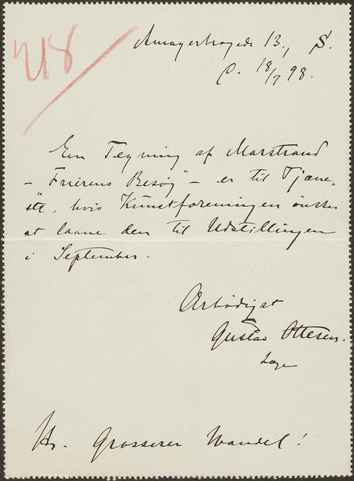 218
Amagerbrogade 13, S.
d. 18/7 98.
En Tegning af Marstrand
- "Frierens Besøg" - er til Tjene-
ste, hvis Kunstforeningen ønsker
at laane den til Udstillingen
i September.
Ærbødigst
Gustav Ottesen.
Læge
Hr. Grosserer Wandel!